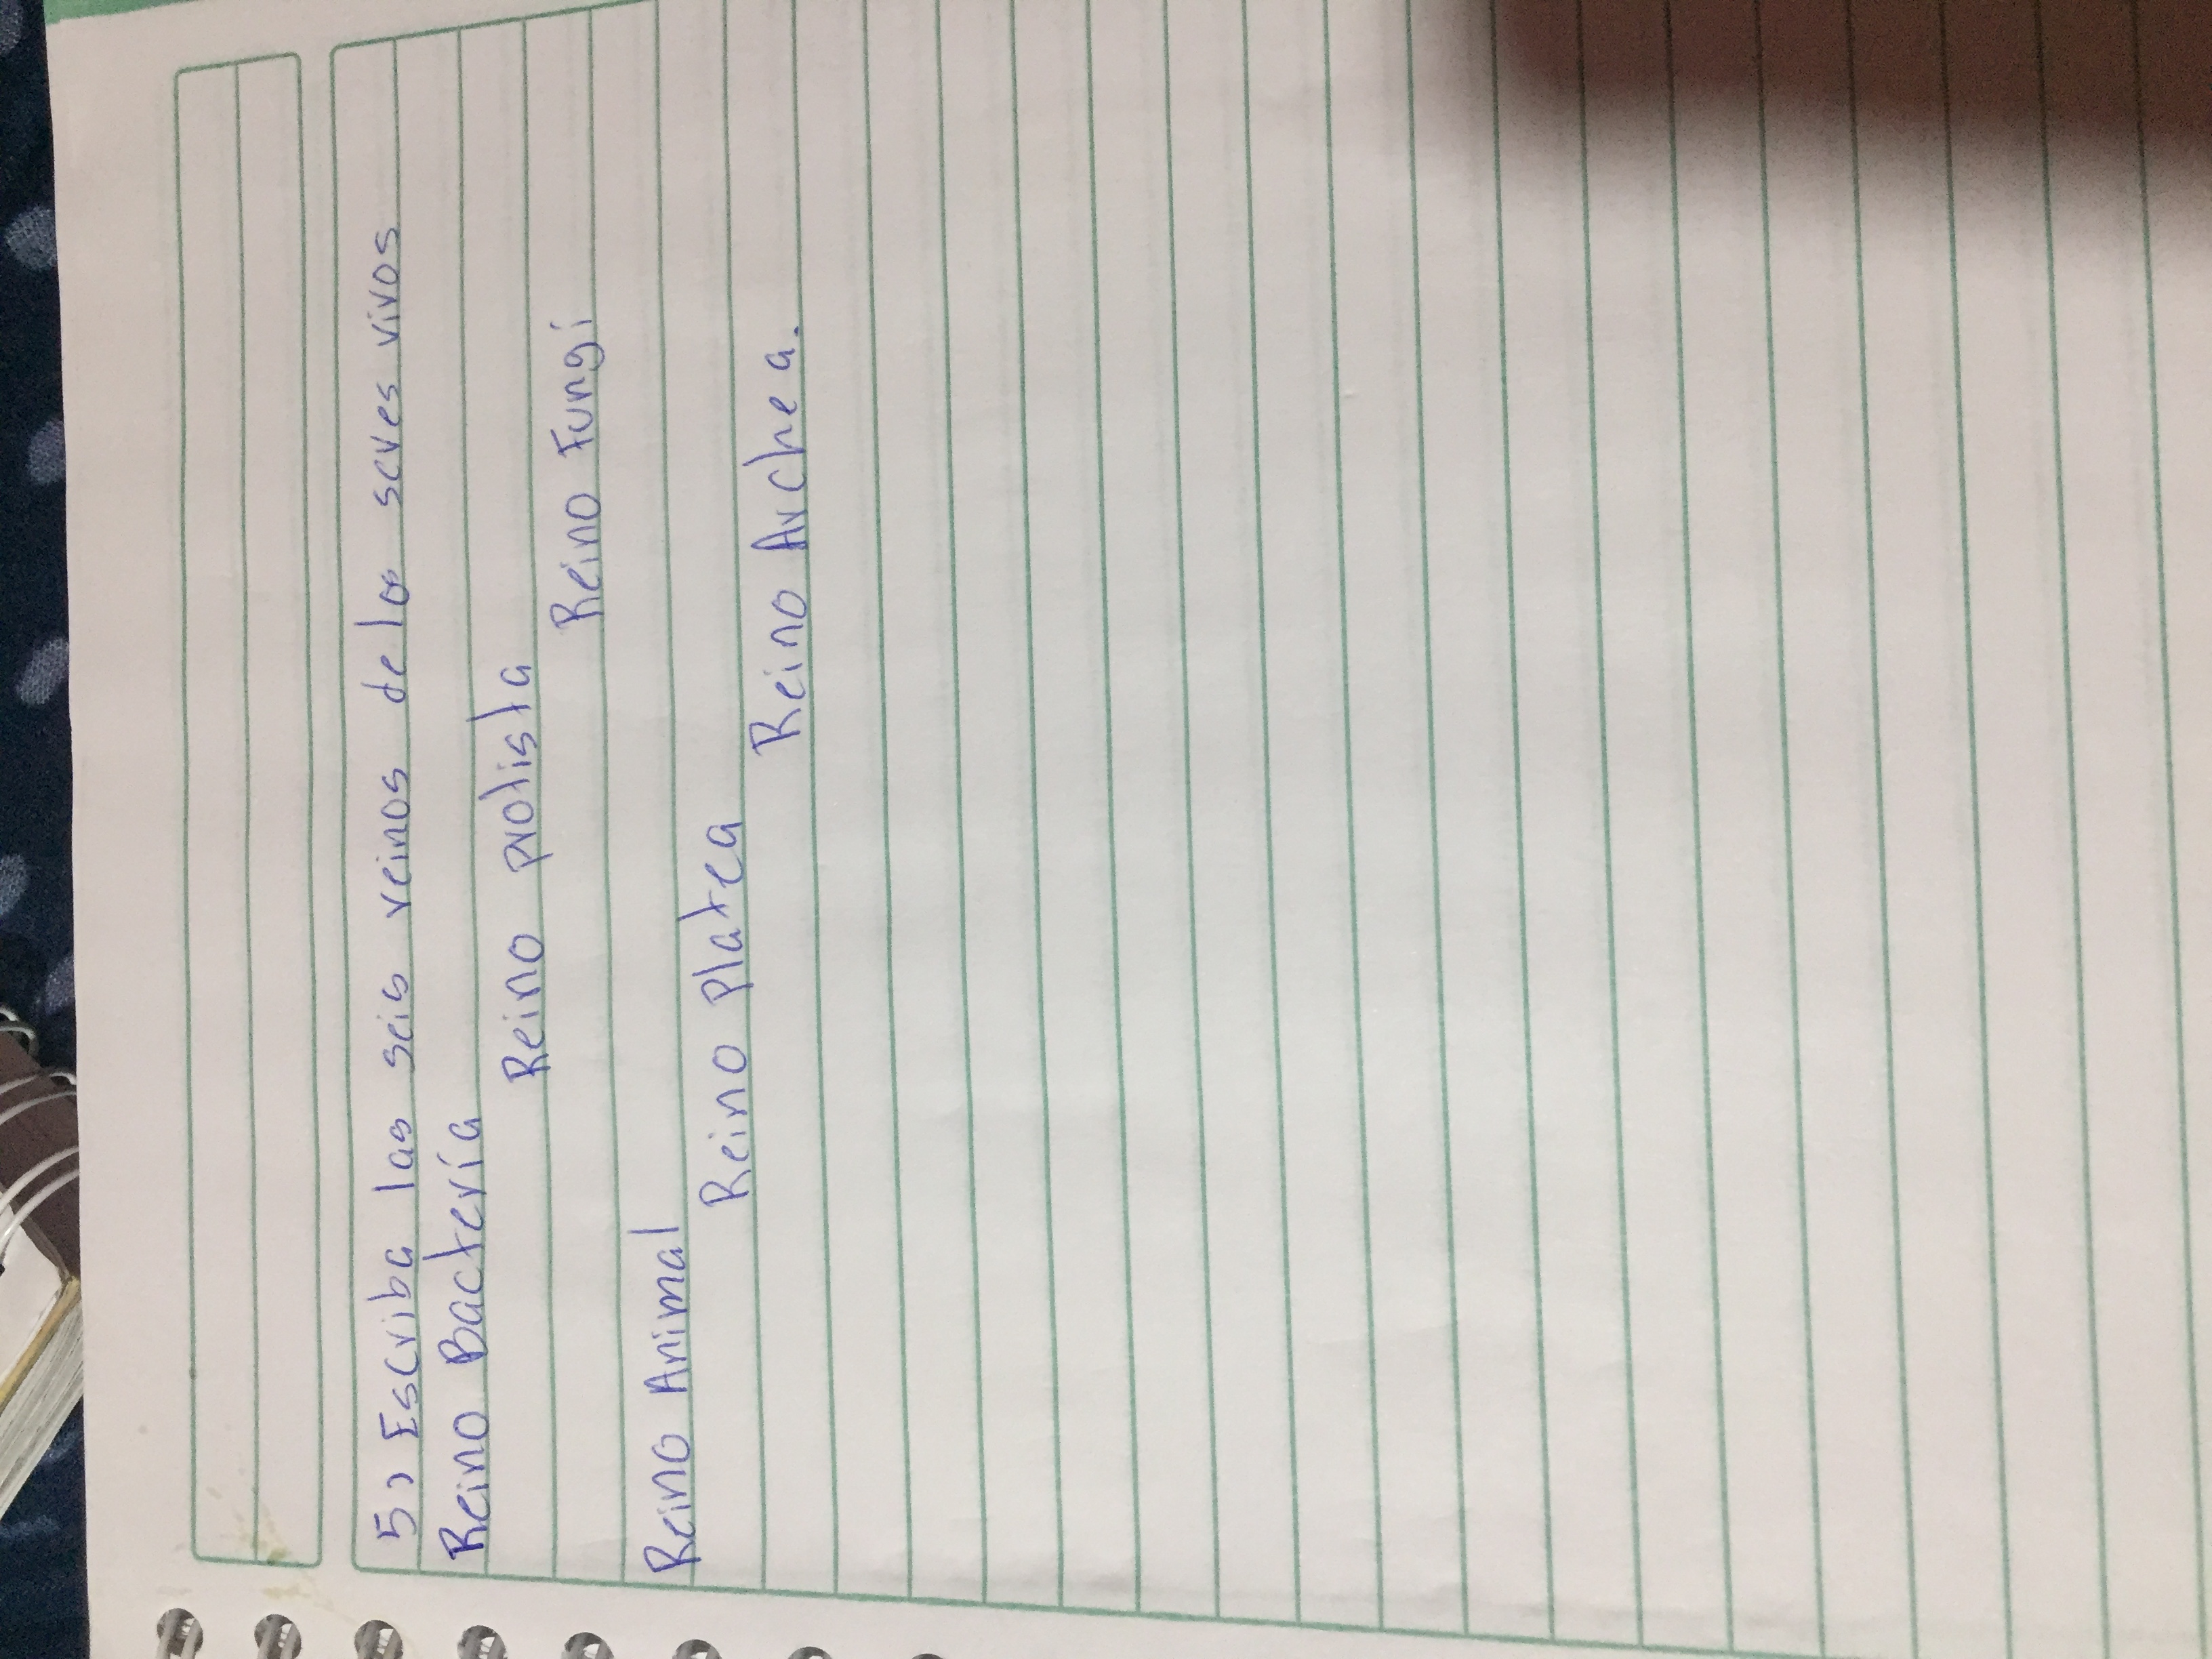 5) Escriba las seis reinos de los seres vivos
Reino Bactería
Reino protista
Reino Fungi
Reino Animal
Reino platea
Reino Archea.